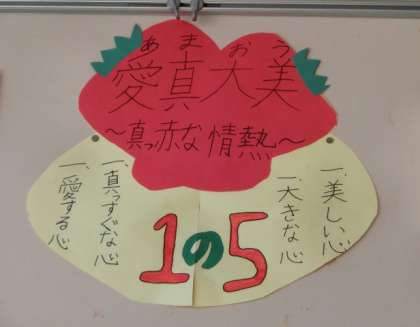 あまおう
愛真大美
～真っ赤な情熱～
一、美しい心
一、大きな心
一、真っすぐな心
一、愛する心
1の5